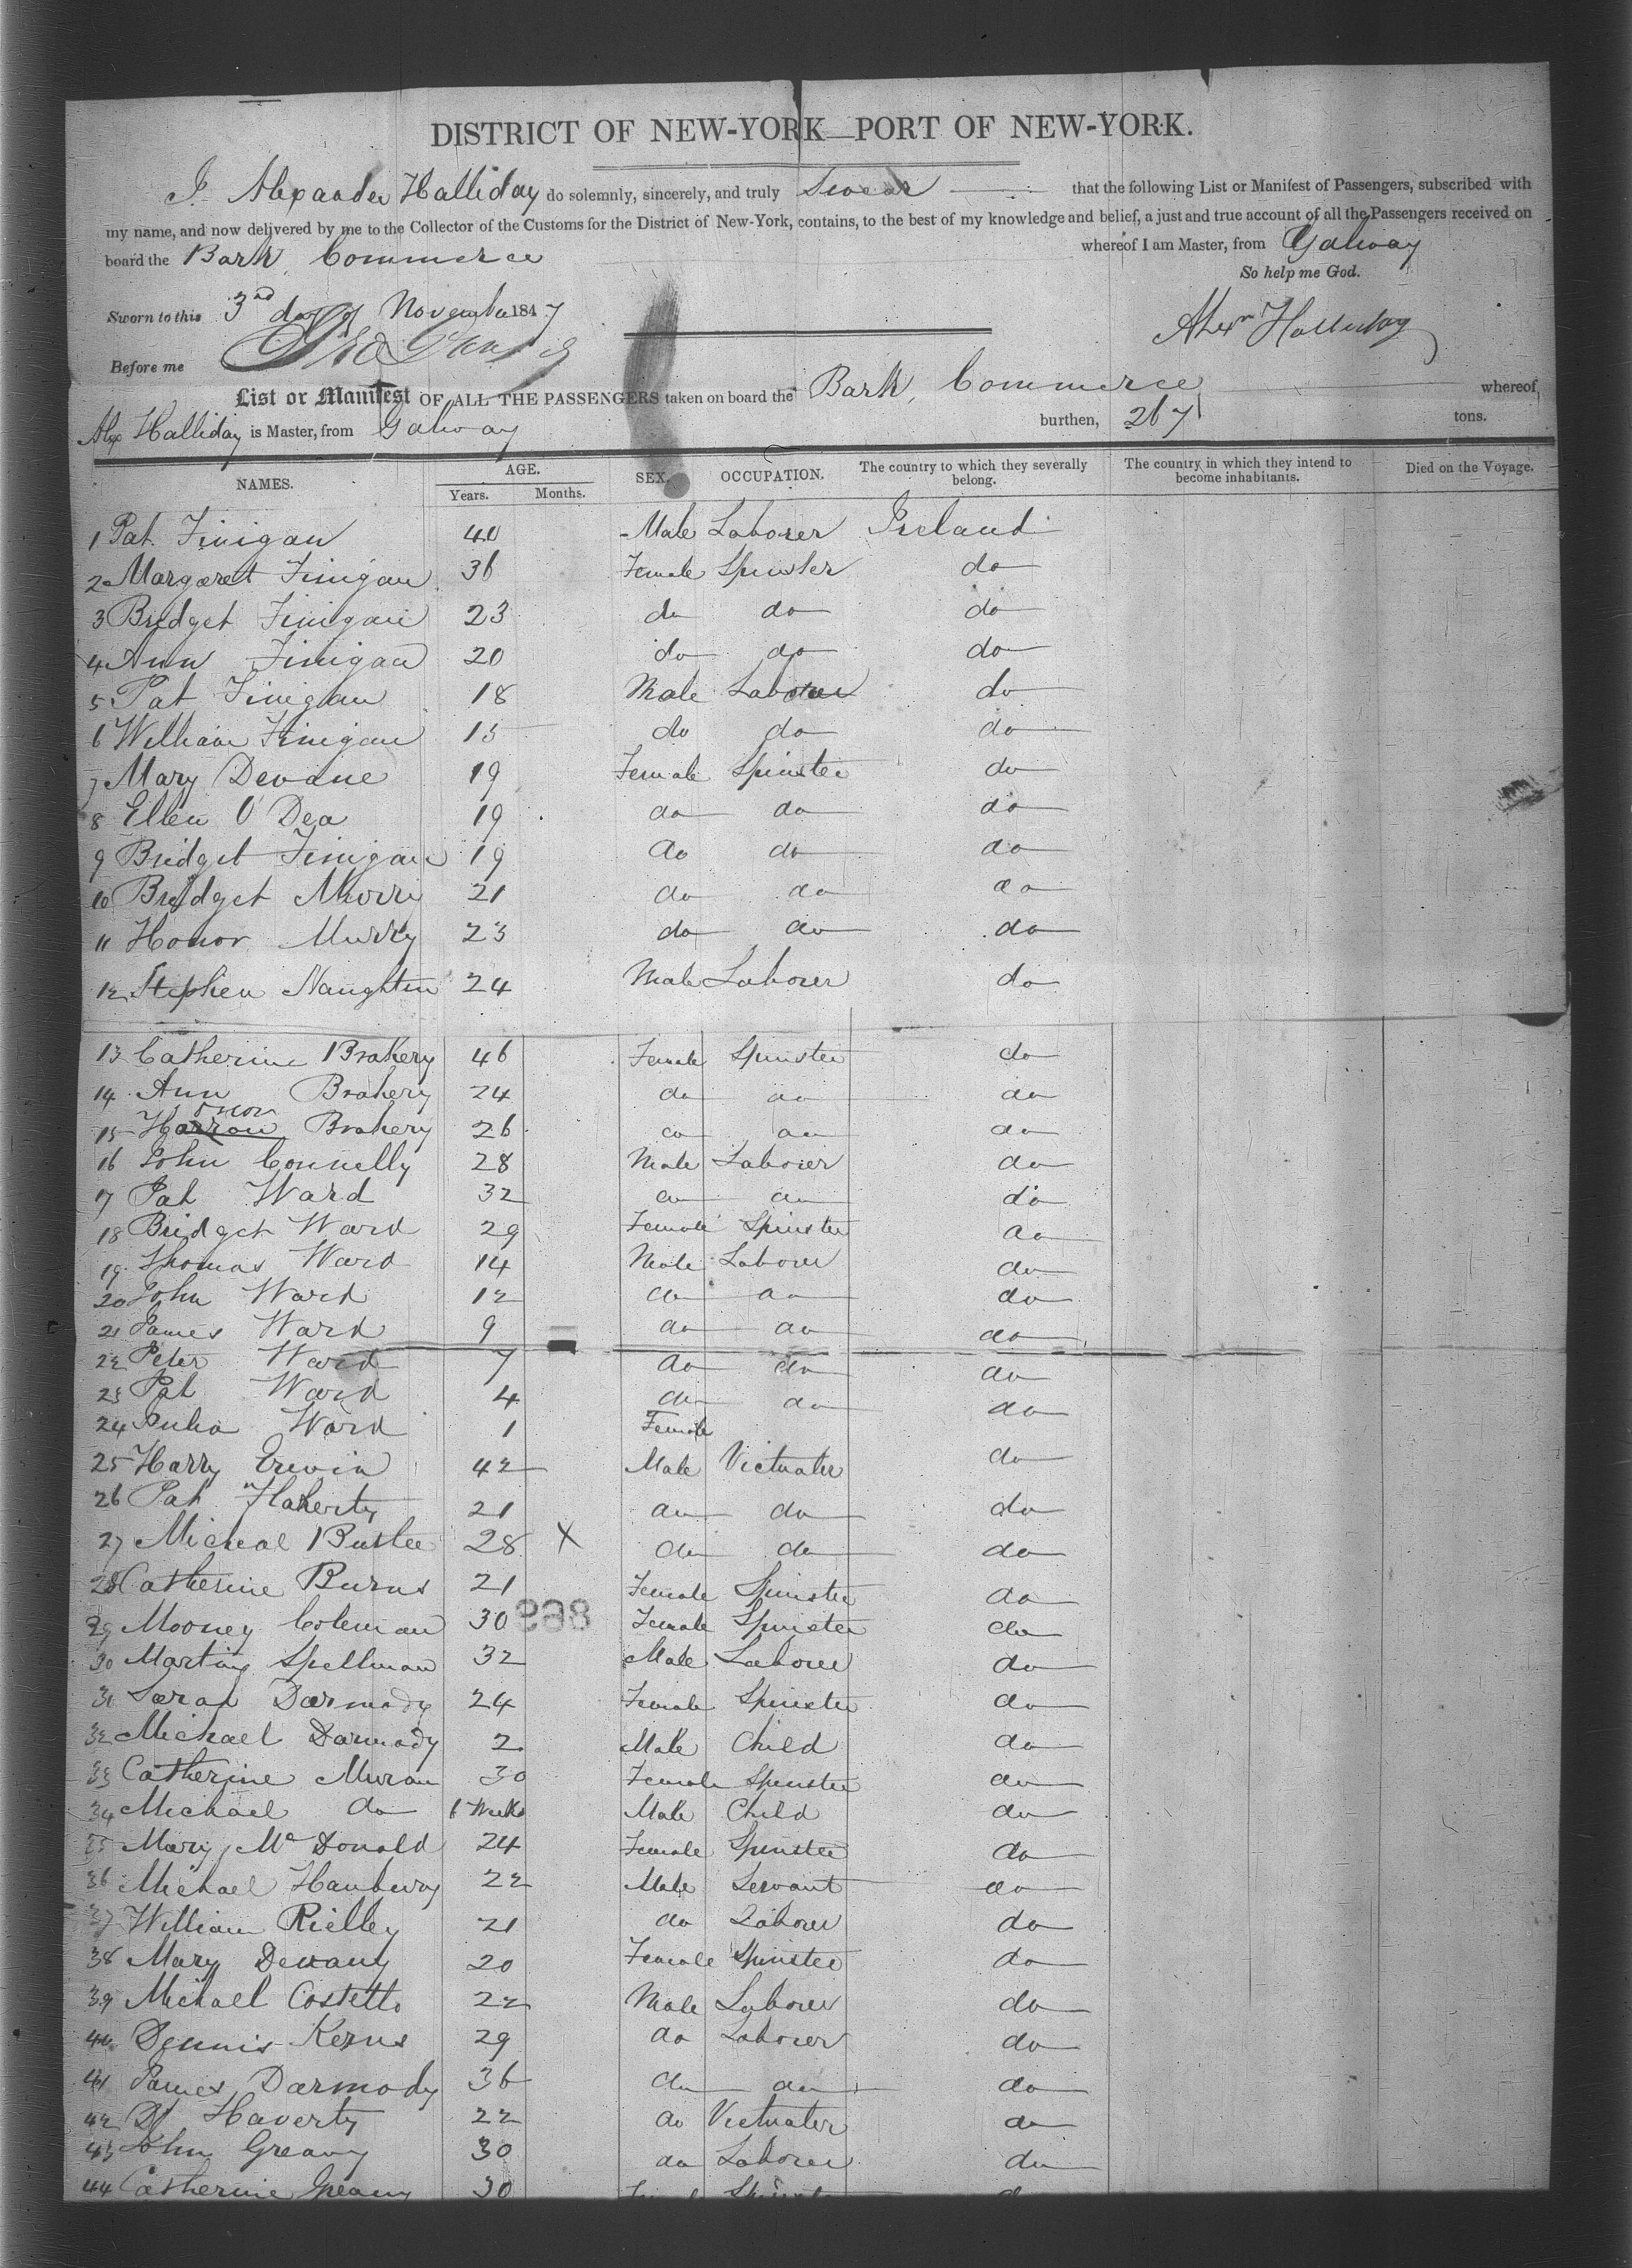 DISTRICT OF NEW-YORK—PORT OF NEW-YORK.
I Alexander Halliday do solemnly, sincerely, and truly Swear that the following List or Manifest of Passengers, subscribed with
my name, and now delivered by me to the Collector of the Customs for the District of New-York, contains, to the best of my knowledge and belief, a just and true account of all the Passengers received on
board the Bark Commerce whereof I am Master, from Galway
So help me God.
Sworn to this 3rd day of November 1847
Alexr Halliday
Before me
List or Manifest OF ALL THE PASSENGERS taken on board the Bark Commerce whereof,
Alex Halliday is Master, from Galway burthen, 267 tons.
NAMES. AGE. Years. Months. SEX. OCCUPATION. The country to which they severally belong. The country in which they intend to become inhabitants. Died on the Voyage.
1 Pat Finigan 40 Male Laborer Ireland
2 Margaret Finigan 36 Female Spinster do
3 Bridget Finigan 23 do do do
4 Ann Finigan 20 do do do
5 Pat Finigan 18 Male Laborer do
6 William Finigan 15 do do do
7 Mary Devane 19 Female Spinster do
8 Ellen O'Dea 19 do do do
9 Bridget Finigan 19 do do do
10 Bridget 21 do do do
11 Honor Murry 23 do do do
12 Stephen Naughten 24 Male Laborer do
13 Catherine Brahery 46 Female Spinster do
14 Ann Brahery 24 do do do
15 Honor Brahery 26 do do do
16 John Connelly 28 Male Laborer do
17 Pat Ward 32 do do do
18 Bridget Ward 29 Female Spinster do
19 Thomas Ward 14 Male Laborer do
20 John Ward 12 do do do
21 James Ward 9 do do do
22 Peter Ward 7 do do do
23 Pat Ward 4 do do do
24 Julia Ward 1 Female
25 Harry Erwin 42 Male Victualer do
26 Pat Flaherty 21 do do do
27 Micheal 28 X do do do
28 Catherine Burns 21 Female Spinster do
29 Mooney Coleman 30 Female Spinster do
898
30 Martin Spellman 32 Male Laborer do
31 Sarah Darmody 24 Female Spinster do
32 Michael Darmody 2 Male Child do
33 Catherine Muran 30 Female Spinster do
34 Michael do 6 Weeks Male Child do
35 Mary McDonald 24 Female Spinster do
36 Michael 22 Male Servant do
37 William Rielley 21 do Laborer do
38 Mary Devany 20 Female Spinster do
39 Michael Costello 22 Male Laborer do
40 Dennis Kerns 29 do Laborer do
41 James Darmody 36 do do do
42 Haverty 22 do Victualer do
43 John Greany 30 do Laborer do
44 Catherine Greany 30